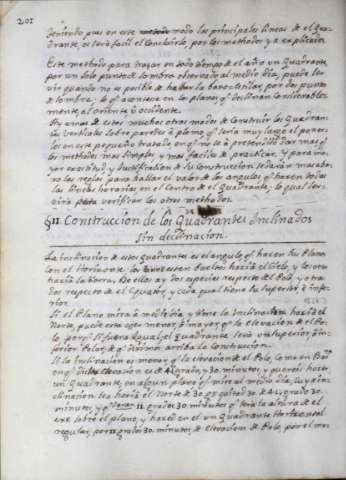 201
teniendo pues en este modo las principales lineas de el Qua-
drante, os será facil el concluirlo, por los methodos ya explicados.
Este methodo para trazar en todo tiempo de el año un Quadrante
por un solo punto de sombra observado al medio dia, puede ser-
vir quando no es posible de hallar la por dos puntos
de sombra, lo q acontece en los planos q declinan considerable-
mente al oriente ù occidente.
muchos otros modos de construir los Quadran-
tes verticales sobre paredes à plomo q sería muy largo el poner-
los en este pequeño tratado en q no se à pretendido dar mas q
los methodos mas simples y mas faciles de practicar. Y para ma-
yor exactitud y de su construccion
no las reglas para hallar el valor de los angulos q hacen todas
las lineas horarias en el centro de el Quadrante, lo qual ser-
virá para verificar los otros methodos.
§11 Construccion de los Quadrantes Inclinados
sin declinacion.
La inclinacion de estos Quadrantes es el angulo q hacen su Plano
con el Horizonte, los bueltos hacia el Cielo, y los otros
hacia la tierra, De ellos ay dos especies respecto de el Polo, y otras
dos respecto de el Equator, y cada qual tiene su superior è infe-
rior.
Si el Plano mira à medio dia, y tiene la Inclinacion hacia el
Norte, puede esta ser menor, ò mayor, q la elevacion de el Po-
lo, porq si fuera igual, el Quadrante será superior, ò in-
ferior Polar, de q dijimos arriba la Construccion.
Si la Inclinacion es menor q la elevacion de el Polo, como en
en q dicha elevacion es de 41 grados, y 30. minutos, y quereis hacer
un Quadrante, en algun plano q mire al medio dia, cuya in-
clinacion sea hacia el Norte de 30 gs quitad 30. de 41 grados 30.
minutos, y q 11 grados 30. minutos q será la altura de el
exe sobre el plano, y haced en el un Quadrante Horizontal
regular, por 11 grados 30. minutos, de elevacion de Polo, por el me-